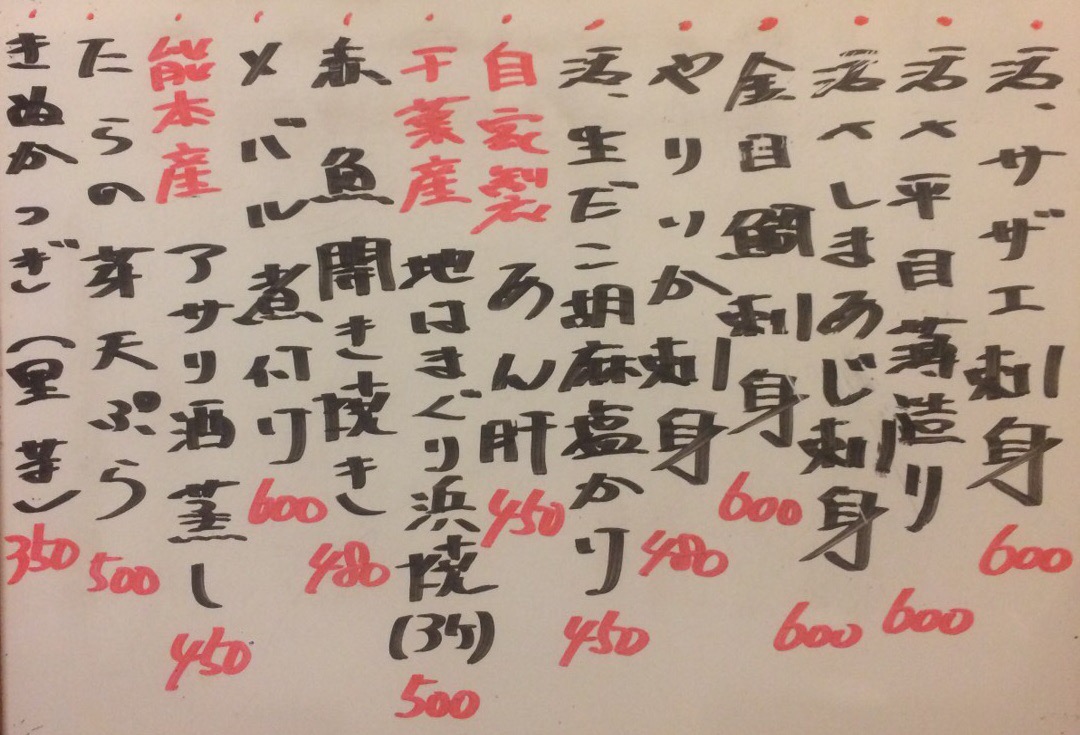 活、サザエ刺身 600
活〆平目薄造り 600
活〆しまあじ刺身 600
金目鯛刺身 600
やりいか刺身 480
活、生だこ胡麻塩かけ 450
自家製 あん肝 450
千葉産 地はまぐり浜焼(3ケ) 500
赤魚開き焼き 480
メバル煮付け 600
熊本産 アサリ酒蒸し 450
たらの芽天ぷら 500
きぬかつぎ(里芋) 350